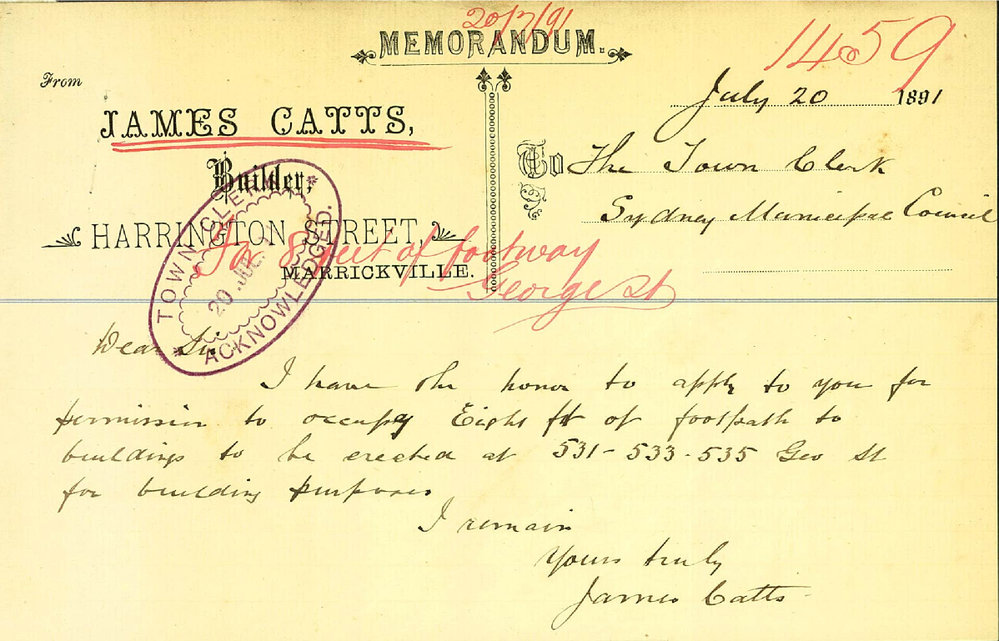 20/7/91
MEMORANDUM.
1459
From
July 20 1891
JAMES CATTS,
Builder,
HARRINGTON STREET,
MARRICKVILLE.
To The Town Clerk
Sydney Municipal Council
For 8 feet of footway
George St
TOWN CLERK
20 JUL
ACKNOWLEDGED.
Dear Sir
I have the honor to apply to you for
permission to occupy Eight ft of footpath to
buildings to be erected at 531-533-535 Geo St
for building purposes
I remain
Yours truly
James Catts